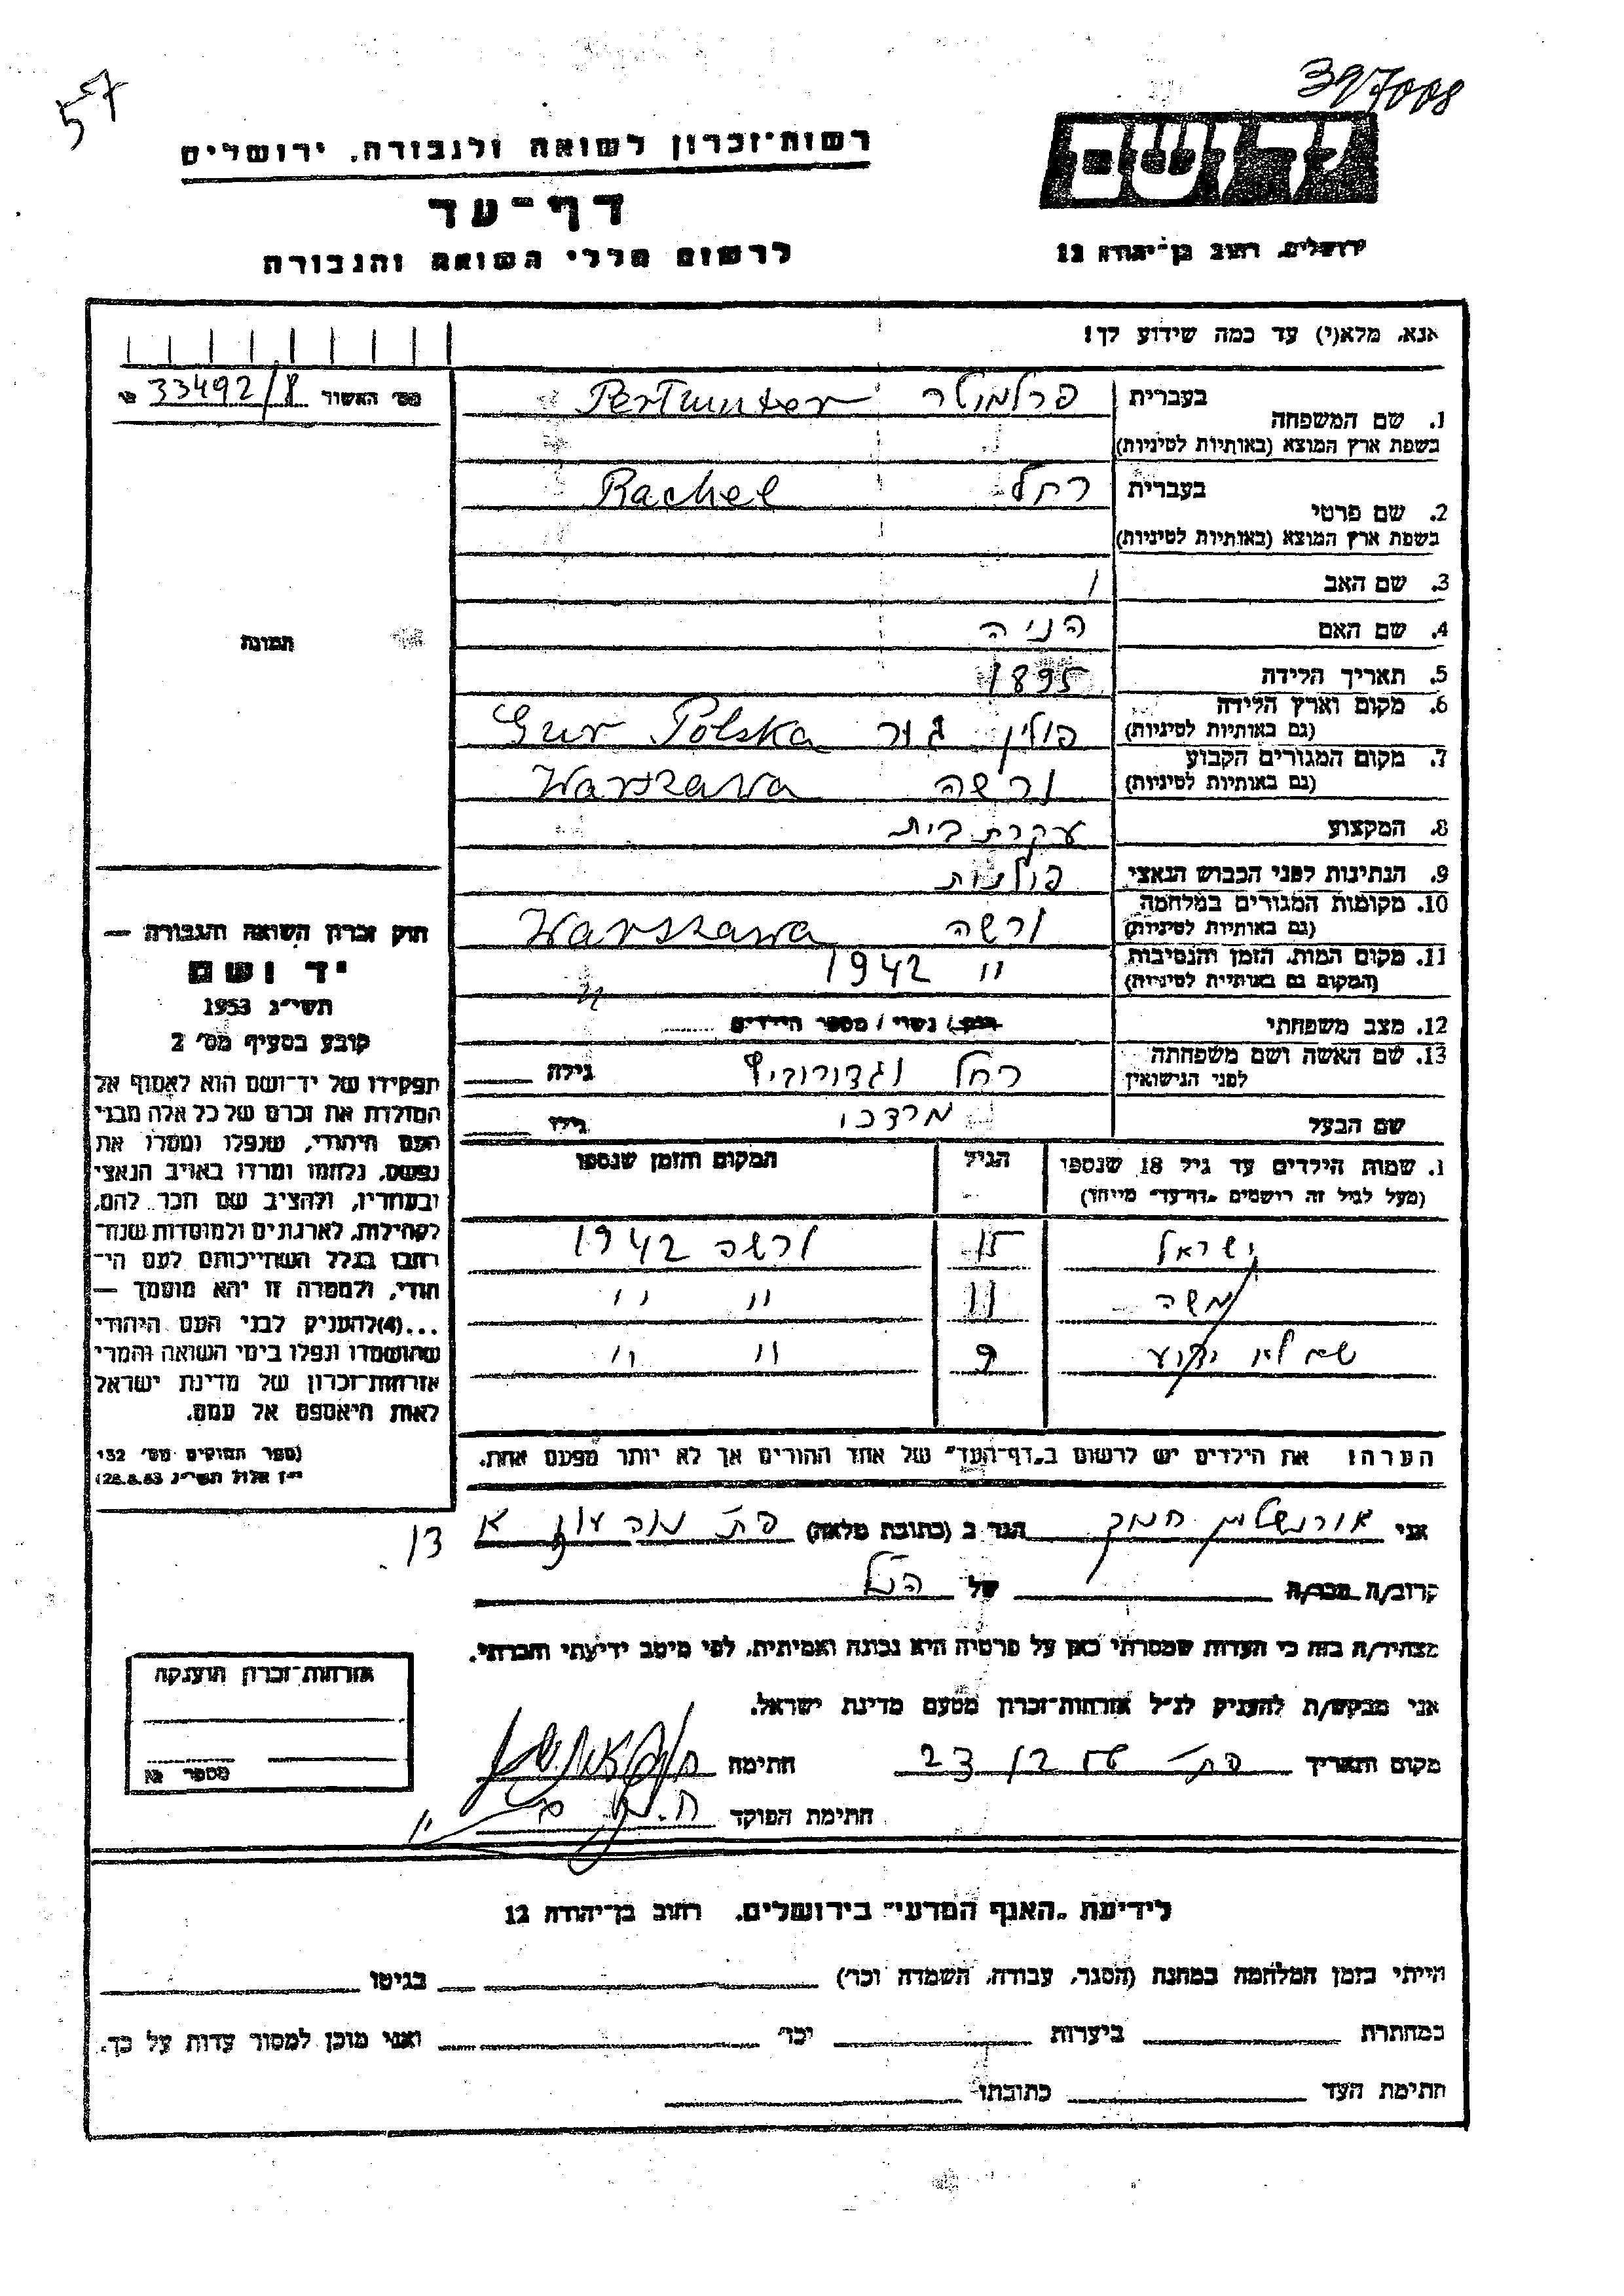 57
397008
רשות־זכרון לשואה ולגבורה, ירושלים
דף־עד
לרשום חללי השואה והגבורה
יד ושם
ירושלים, רחוב בן־יהודה 12
אנא, מלא(י) עד כמה שידוע לך!
מס' האשור 33492/8
1. שם המשפחה בעברית פרלמוטר Perlmuter
בשפת ארץ המוצא (באותיות לטיניות)
2. שם פרטי בעברית רחל Rachel
בשפת ארץ המוצא (באותיות לטיניות)
3. שם האב /
4. שם האם הניה
5. תאריך הלידה 1895
6. מקום וארץ הלידה פולין גור Gur Polska
(גם באותיות לטיניות)
7. מקום המגורים הקבוע ורשה Warszawa
(גם באותיות לטיניות)
8. המקצוע עקרת בית
9. הנתינות לפני הכבוש הנאצי פולנית
10. מקומות המגורים במלחמה ורשה Warszawa
(גם באותיות לטיניות)
11. מקום המות, הזמן והנסיבות " 1942
(המקום גם באותיות לטיניות)
12. מצב משפחתי רווק / נשוי / מספר הילדים
13. שם האשה ושם משפחתה רחל גילה
לפני הנישואין
שם הבעל מרדכי גילו
תמונה
חוק זכרון השואה והגבורה —
יד ושם
תשי"ג 1953
קובע בסעיף מס' 2
תפקידו של יד־ושם הוא לאסוף אל
המולדת את זכרם של כל אלה מבני
העם היהודי, שנפלו ומסרו את
נפשם, נלחמו ומרדו באויב הנאצי
ובעוזריו, ולהציב שם וזכר להם,
לקהילות, לארגונים ולמוסדות שנח־
רבו בגלל השתייכותם לעם הי־
הודי, ולמטרה זו יהא מוסמך —
...(4) להעניק לבני העם היהודי
שהושמדו ונפלו בימי השואה והמרי
אזרחות־זכרון של מדינת ישראל
לאות היאספם אל עמם.
(ספר החוקים מס' 132
י"ז אלול תשי"ג 28.8.53)
1. שמות הילדים עד גיל 18 שנספו הגיל המקום והזמן שנספו
(מעל לגיל זה רושמים „דף־עד" מיוחד)
ישראל 15 ורשה 1942
משה 11 " "
שם לא ידוע 9 " "
הערה! את הילדים יש לרשום ב„דף־העד" של אחד ההורים אך לא יותר מפעם אחת.
אני אורנשטיין חנוך הגר ב (כתובת מלאה) פת
קרוב/ה מכר/ה של הנ"ל
מצהיר/ה בזה כי העדות שמסרתי כאן על פרטיה היא נכונה ואמיתית, לפי מיטב ידיעתי והכרתי.
אני מבקש/ת להעניק לנ"ל אזרחות־זכרון מטעם מדינת ישראל.
מקום ותאריך חתימה
חתימת הפוקד
אזרחות־זכרון הוענקה
מספר
לידיעת „האגף המדעי" בירושלים, רחוב בן־יהודה 12
הייתי בזמן המלחמה במחנה (הסגר, עבודה, השמדה וכו') בגיטו
במחתרת ביערות וכו' ואני מוכן למסור עדות על כך.
חתימת העד כתובתו